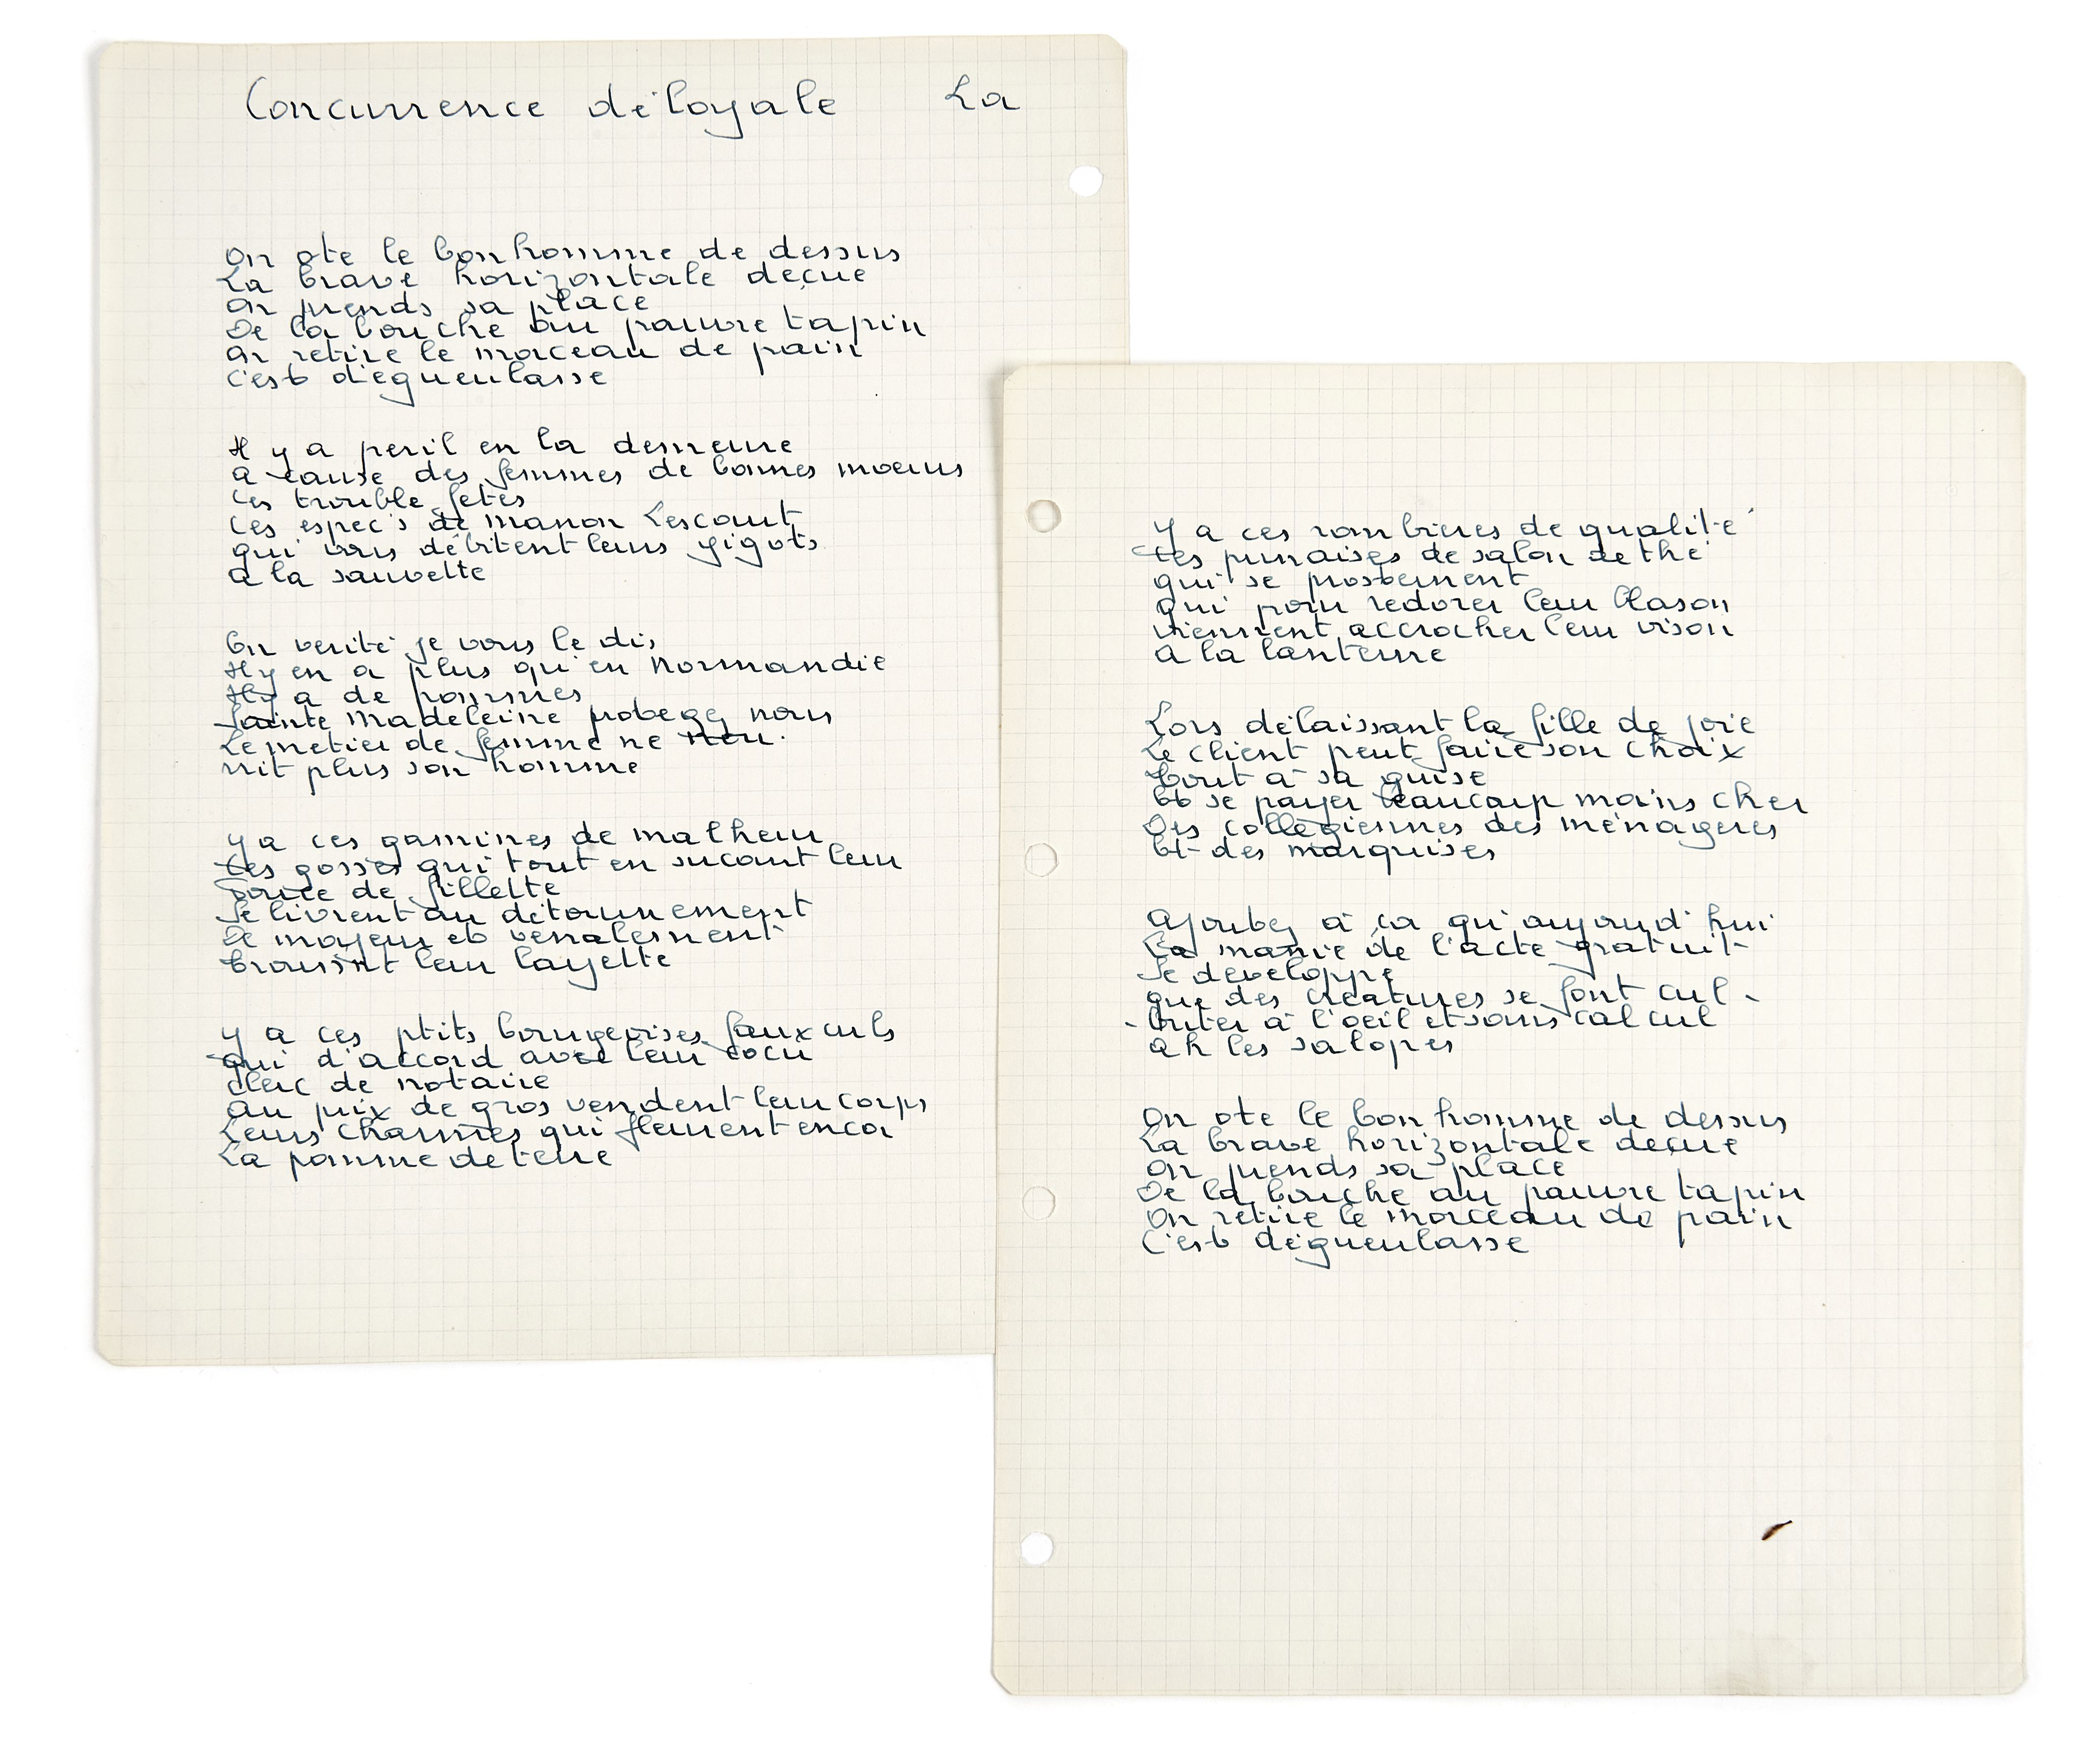 Concurrence déloyale La
On ote le bonhomme de dessus
La brave horizontale deçue
On prends sa place
De la bouche au pauvre tapin
On retire le morceau de pain
C'est dégueulasse
Il y a peril en la demeure
a cause des femmes de bonnes moeurs
ces trouble fetes
ces espec's de manon Lescaut
qui vous débitent leurs gigots
a la sauvette
En verité je vous le dis,
Il y en a plus qu'en normandie
Il y a de pommes
Sainte Madeleine protegez nous
Le metier de femme ne neu
rrit plus son homme
y a ces gamines de malheur
ces gosses qui tout en sucant leur
Pouce de fillette
Se livrent au détournement
De majeur et venalement
Troussent leur layette
y a ces ptits bourgeoises faux culs
qui d'accord avec leur cocu
clerc de notaire
au prix de gros vendent leur corps
Leurs charmes qui fleurent encor
La pomme de terre
y a ces rombieres de qualité
ces punaises de salon de thé
qui se prosternent
qui pour redorer leur blason
viennent accrocher leur vison
a la lanterne
Lors délaissant la fille de joie
Le client peut faire son choix
tout à sa guise
Et se payer beaucoup moins cher
Des collegiennes des ménageres
Et des marquises
ajoutez à ca qu'aujourd'hui
La manie de l'acte gratuit
Se developpe
que des creatures se font cul -
- buter à l'oeil et sans calcul
ah les salopes
On ote le bonhomme de dessus
La brave horizontale deçue
on prends sa place
De la bouche au pauvre tapin
On retire le morceau de pain
C'est dégueulasse